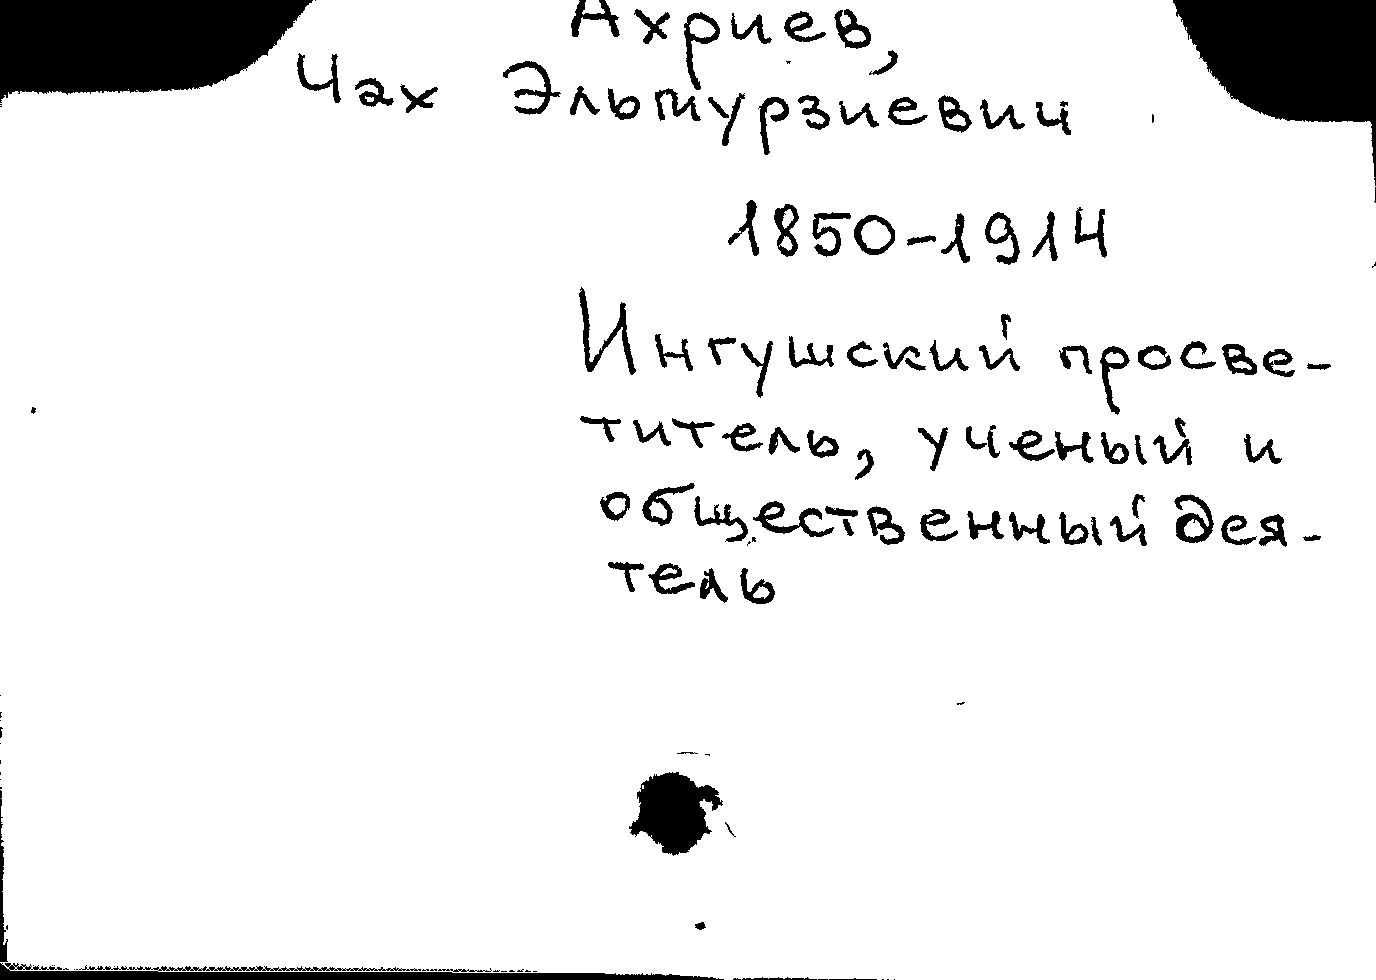 Ахриев,
Чах Эльмурзиевич
1850-1914
Ингушский просве-
титель, ученый и
общественный дея-
тель